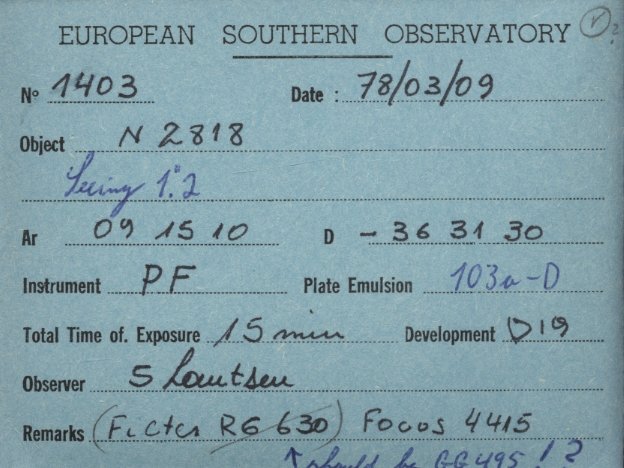 EUROPEAN SOUTHERN OBSERVATORY ?
Nº 1403 Date : 78/03/09
Object N 2818
Seeing 1."2
Ar 09 15 10 D - 36 31 30
Instrument PF Plate Emulsion 103a-D
Total Time of. Exposure 15 min Development D19
Observer S Lautsen
Remarks (Filter RG 630) Focus 4415
↑ should be GG495 ! ?